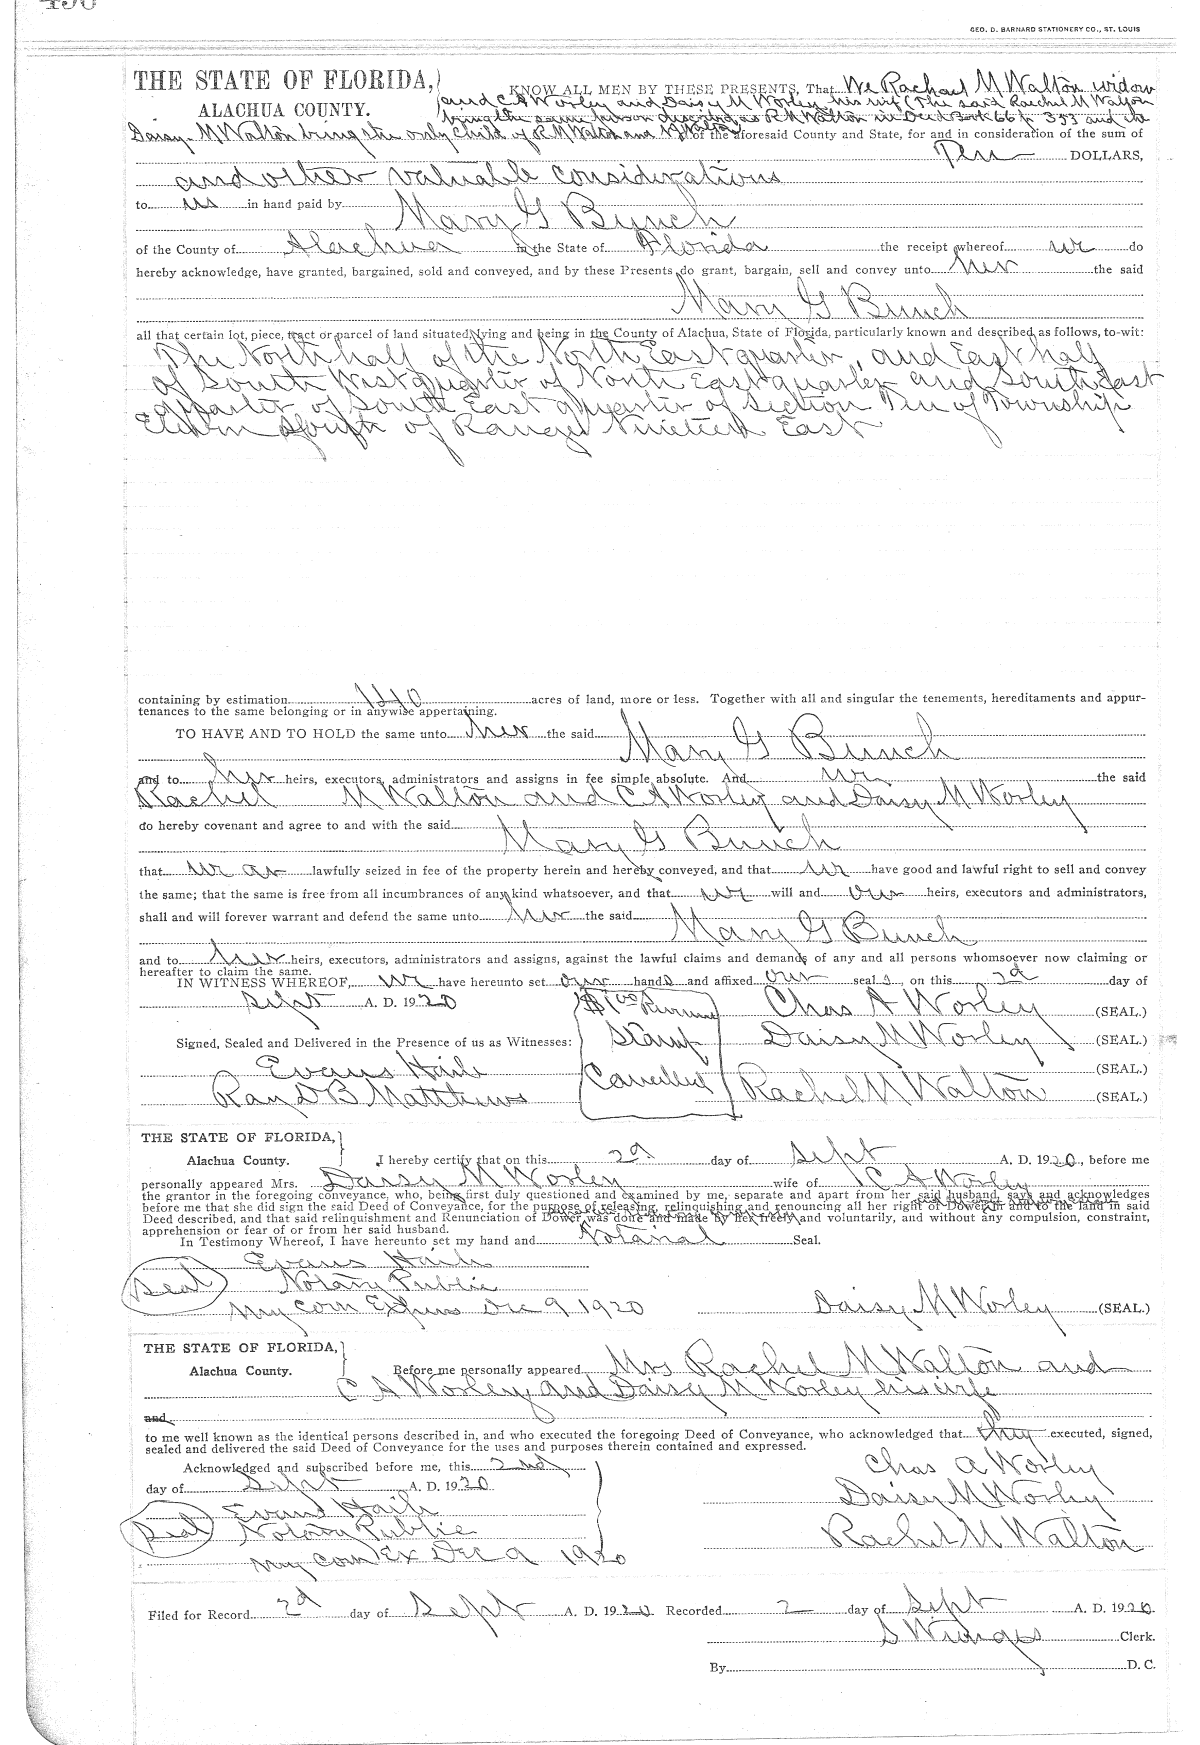 GEO. D. BARNARD STATIONERY CO., ST. LOUIS
THE STATE OF FLORIDA,
ALACHUA COUNTY.
KNOW ALL MEN BY THESE PRESENTS, That We Rachael M Walton widow
and C A Worley and Daisy M Worley his wife (The said Raechel M Walton
being the same person described as R M Walton in Deed Book 66 p 353 and the
Daisy M Walton being the only child of R M Walton and Walton of the aforesaid County and State, for and in consideration of the sum of
Ten DOLLARS,
and other valuable considerations
to us in hand paid by
Mary G Bunch
of the County of Alachua in the State of Florida the receipt whereof we do
hereby acknowledge, have granted, bargained, sold and conveyed, and by these Presents do grant, bargain, sell and convey unto her the said
Mary G Bunch
all that certain lot, piece, tract or parcel of land situated, lying and being in the County of Alachua, State of Florida, particularly known and described as follows, to-wit:
The North half of the North East quarter, and East half
of South West quarter of North East quarter and South East
quarter of South East quarter of Section Ten of Township
Eleven South of Range Nineteen East
containing by estimation 140 acres of land, more or less. Together with all and singular the tenements, hereditaments and appur-
tenances to the same belonging or in anywise appertaining.
TO HAVE AND TO HOLD the same unto her the said
Mary G Bunch
and to her heirs, executors, administrators and assigns in fee simple absolute. And we the said
Rachel M Walton and C A Worley and Daisy M Worley
do hereby covenant and agree to and with the said
Mary G Bunch
that we are lawfully seized in fee of the property herein and hereby conveyed, and that we have good and lawful right to sell and convey
the same; that the same is free from all incumbrances of any kind whatsoever, and that we will and our heirs, executors and administrators,
shall and will forever warrant and defend the same unto her the said
Mary G Bunch
and to her heirs, executors, administrators and assigns, against the lawful claims and demands of any and all persons whomsoever now claiming or
hereafter to claim the same.
IN WITNESS WHEREOF, we have hereunto set our hands and affixed our seals, on this 2d day of
Sept A. D. 1920
$1.00 Revenue
Stamp
Cancelled
Chas A Worley (SEAL.)
Signed, Sealed and Delivered in the Presence of us as Witnesses:
Daisy M Worley (SEAL.)
Evans Haile (SEAL.)
Ray D B Matthews Rachel M Walton (SEAL.)
THE STATE OF FLORIDA,
Alachua County. I hereby certify that on this 2d day of Sept A. D. 1920, before me
personally appeared Mrs. Daisy M Worley wife of C A Worley
the grantor in the foregoing conveyance, who, being first duly questioned and examined by me, separate and apart from her said husband, says and acknowledges
before me that she did sign the said Deed of Conveyance, for the purpose of releasing, relinquishing and renouncing all her right of Dower in and to the land in said
Deed described, and that said relinquishment and Renunciation of Dower was done and made by her freely and voluntarily, and without any compulsion, constraint,
apprehension or fear of or from her said husband.
In Testimony Whereof, I have hereunto set my hand and Notarial Seal.
Evans Haile
Seal Notary Public
My Com Expires Dec 9 1920 Daisy M Worley (SEAL.)
THE STATE OF FLORIDA,
Alachua County. Before me personally appeared Mrs Rachel M Walton and
C A Worley and Daisy M Worley his wife
and
to me well known as the identical persons described in, and who executed the foregoing Deed of Conveyance, who acknowledged that they executed, signed,
sealed and delivered the said Deed of Conveyance for the uses and purposes therein contained and expressed.
Acknowledged and subscribed before me, this 2nd
day of Sept A. D. 1920
Chas A Worley
Daisy M Worley
Rachel M Walton
Evans Haile
Seal Notary Public
My Com Ex Dec 9 1920
Filed for Record 2d day of Sept A. D. 1920 Recorded 2 day of Sept A. D. 1920
Clerk.
By D. C.